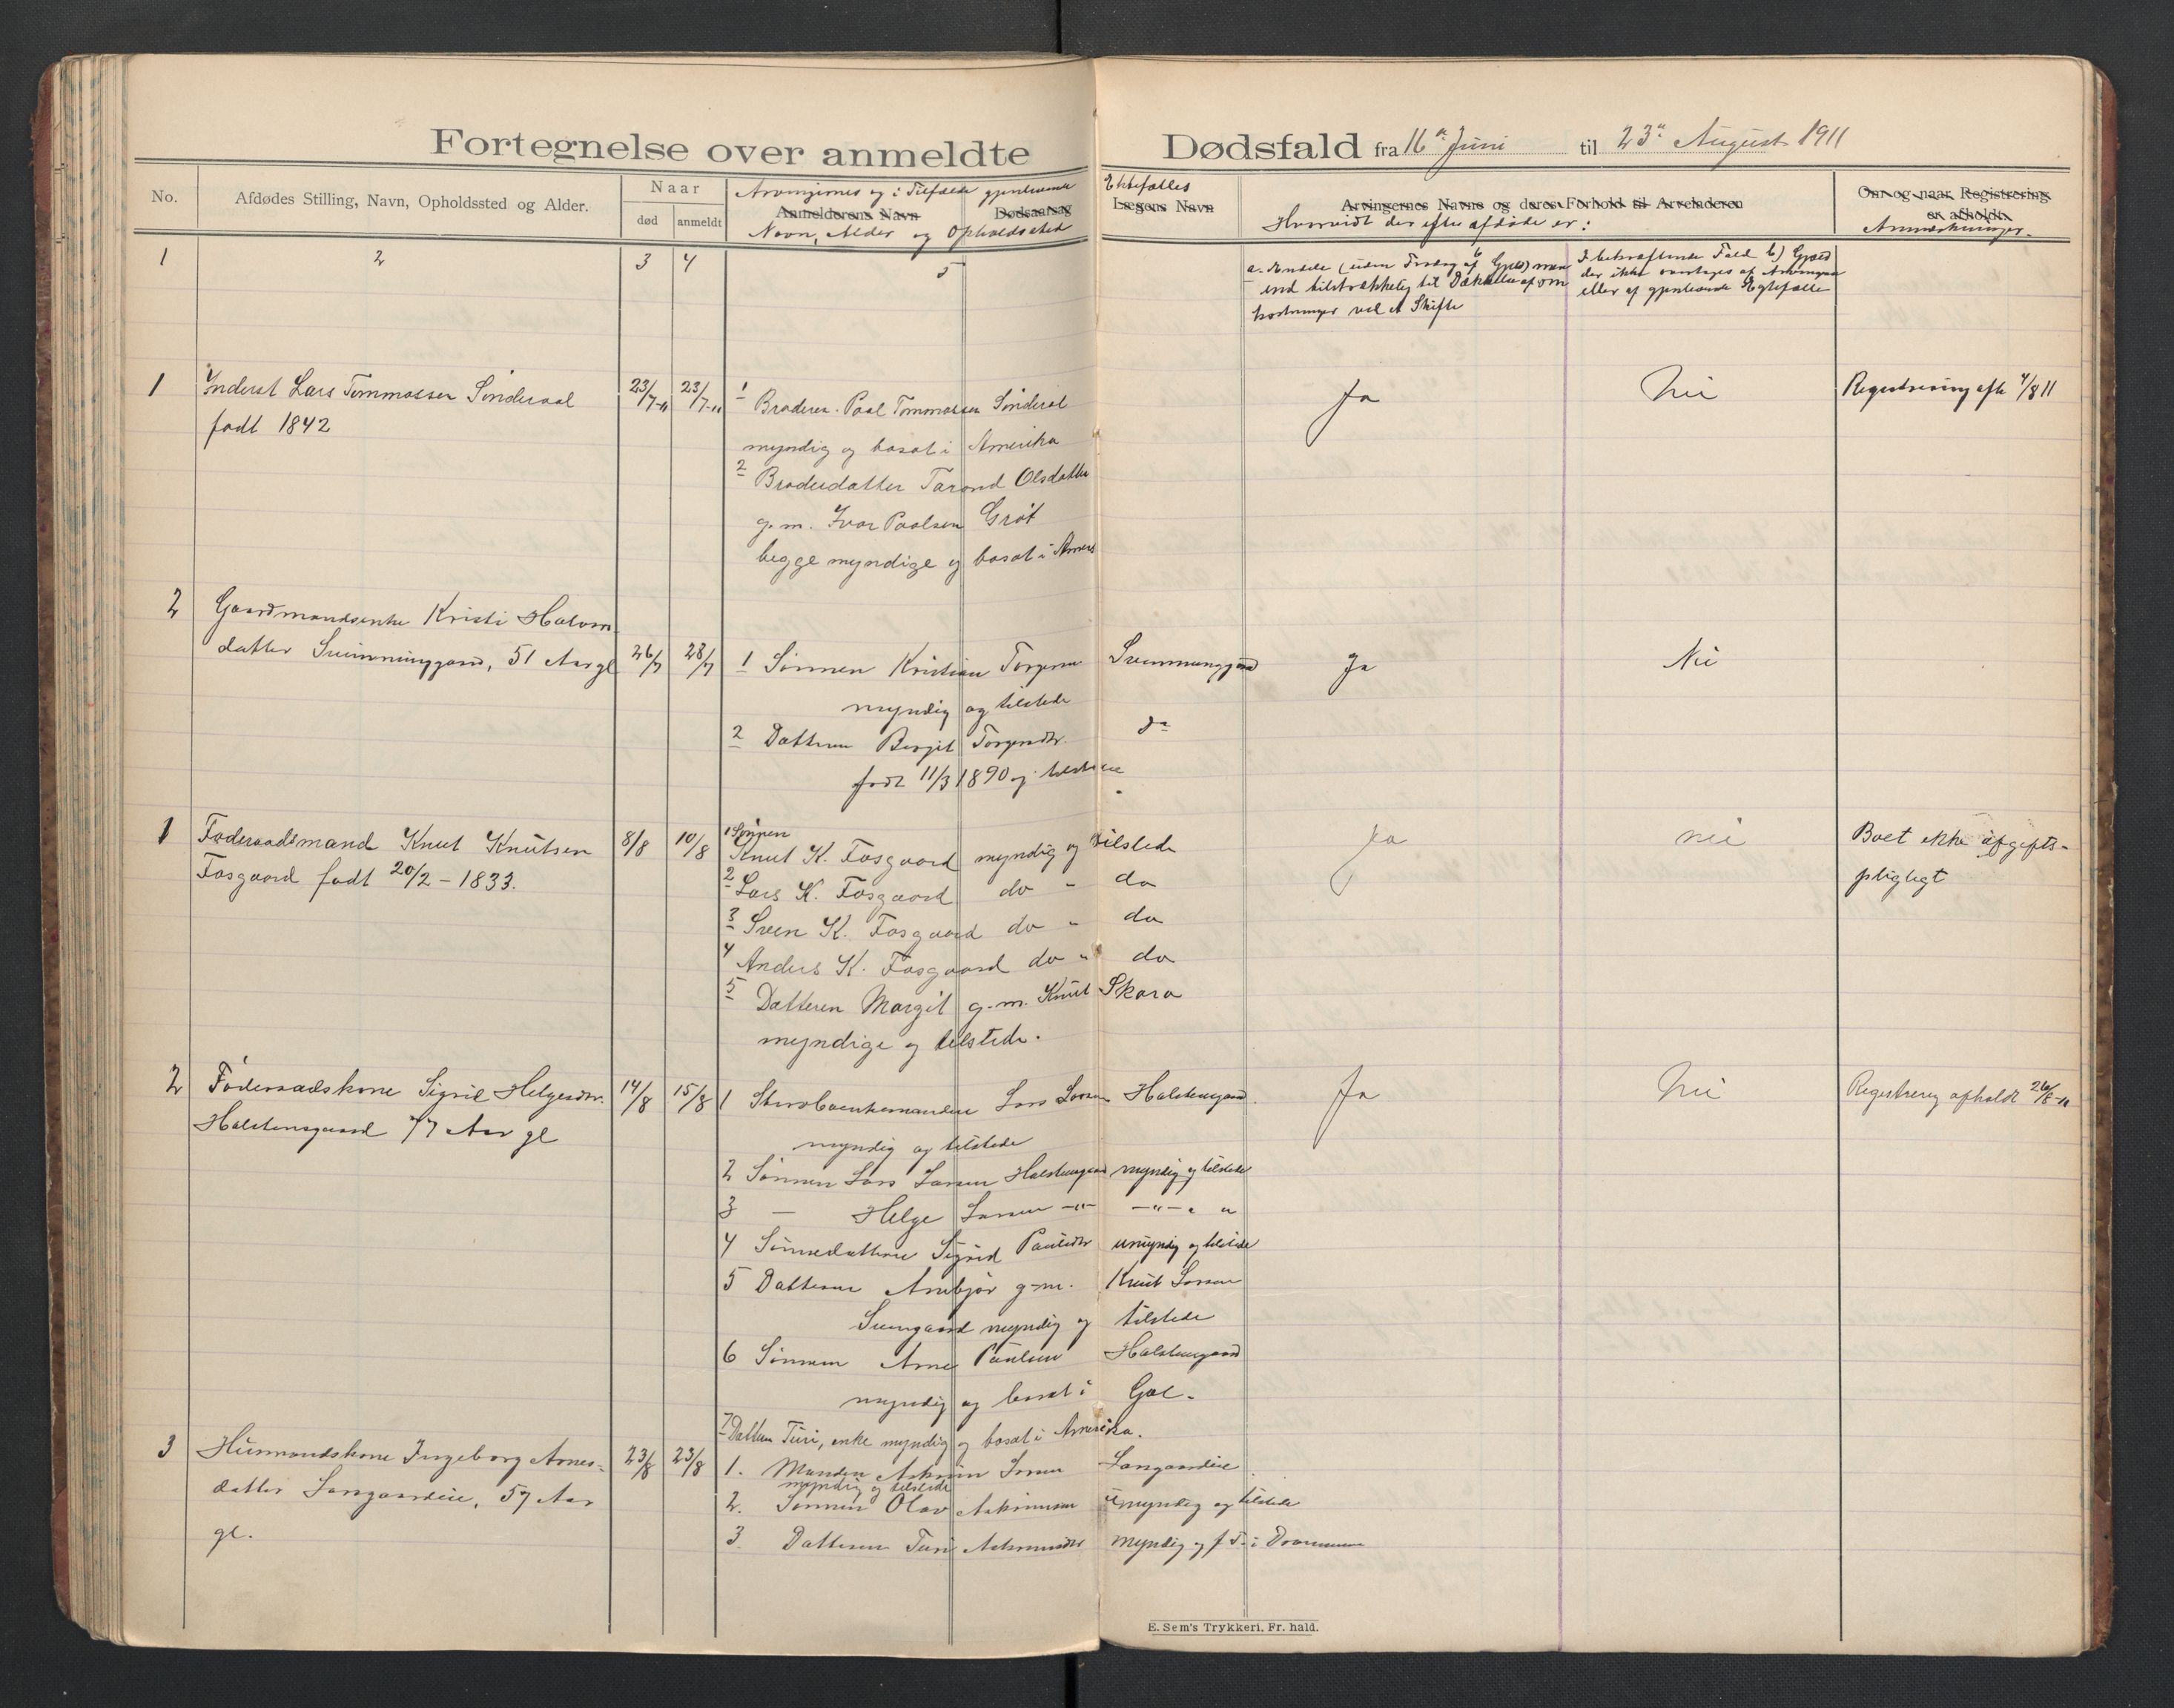 Fortegnelse over anmeldte Dødsfald fra 16de Juni til 23de August 1911
No.
Afdødes Stilling, Navn, Opholdssted og Alder.
Naar
død
anmeldt
Arvingernes og i Tilfælde gjenlevende Ektefælles
Anmelderens Navn Dødsaarsag Lægens Navn
Navn, Alder og Opholdssted
Arvingernes Navne og deres Forhold til Arveladeren
Hvorvidt der efter afdøde er:
Om og naar Registrering
er afholdt.
Anmærkninger.
1 2 3 4 5 6
a. Midler (uden Fradrag af Gjæld) mer
end tilstrækkelig til Dækkelse af om
kostninger ved et Skifte
I bekræftende Fald b) Gjæld
der ikke overtages af Arvingerne
eller af gjenlevende Egtefælle
1 Inderst Lars Tommassen Sinderaal 23/7-11 23/7-11
født 1842
1 Broderen Paal Tommassen Sinderal
myndig og bosat i Amerika
2 Broderdatter Tarand Olsdatter
g. m. Ivar Paalsen Grøt
begge myndige og bosat i Amer
Ja Nei Registrering afh. 4/8 11
2 Gaardmandsenke Kristi Halvors
datter Svenninggard, 51 Aar gl 26/7 28/7
1 Sønnen Kristian Torgersen Svenmunggard
myndig og tilstede
2 Datteren Bergit Torgersdtr. do
født 11/3 1890 og tilstede
Ja Nei
1 Føderaadsmand Knut Knutsen 8/8 10/8
Fosgaard født 20/2 - 1833.
1 Sønnen
Knut K. Fosgaard myndig og tilstede
2 Lars K. Fosgaard do " do
3 Sven K. Fosgaard do " do
4 Anders K. Fosgaard do " do
5 Datteren Margit g. m. Knut Skara
myndige og tilstede.
Ja nei Boet ikke afgifts-
pligtigt
2 Føderaadskone Sigrid Helgesdtr. 14/8 15/8
Halstensgaard 77 Aar gl
1 Lars Larsen Halstensgaard.
myndig og tilstede
2 Sønnen Lars Larsen Halstensgaard myndig og tilstede
3 — Helge Larsen —"— —"— " "
4 Sønnedatteren Sigrid Paulsdtr umyndig og tilstede
5 Datteren Anbjør g. m. Knut Larsen
Svengaard myndig og tilstede
6 Sønnen Arne Paulsen Halstensgaard
myndig og bosat i Gol.
7 Datteren Turi, enke myndig og bosat i Amerika.
Ja Nei Registrering afholdt 26/8-11
3 Husmandskone Ingeborg Arnes- 23/8 23/8
datter Larsgaardeie, 57 Aar
gl.
1. Manden Askrim Larsgaardeie
myndig og tilstede
2. Sønnen Olav Askrimsen umyndig og tilstede
3 Datteren Turi Askrimsdtr myndig og f. T. i Drammen
E. Sem's Trykkeri, Fr. hald.